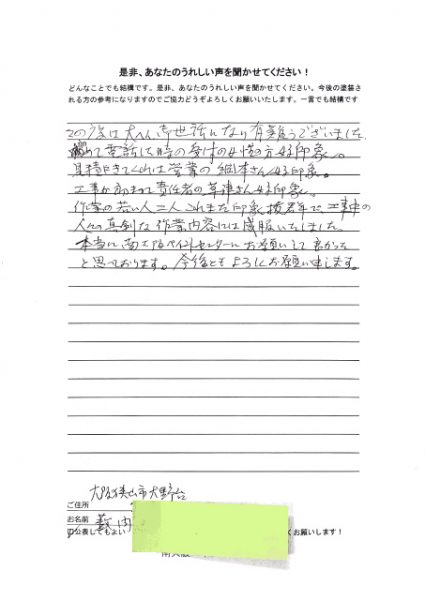 是非、あなたのうれしい声を聞かせてください！
どんなことでも結構です。是非、あなたのうれしい声を聞かせてください。今後の塗装さ
れる方の参考になりますのでご協力どうぞよろしくお願いいたします。一言でも結構です
この度は大変お世話になり有難うございました。
初めて電話した時の受付の女性の方好印象。
見積にきてくれた営業の細本さん好印象。
工事が始まって責任者の草津さん好印象。
作業の若い人二人これまた印象抜群で、工事中の
人々の真剣な作業内容には感服いたしました。
本当に南大阪ペイントセンターにお願いして良かった
と思っております。今後ともよろしくお願い申します。
大阪狭山市大野台
ご住所
お名前
公表してもよい
お願いします！